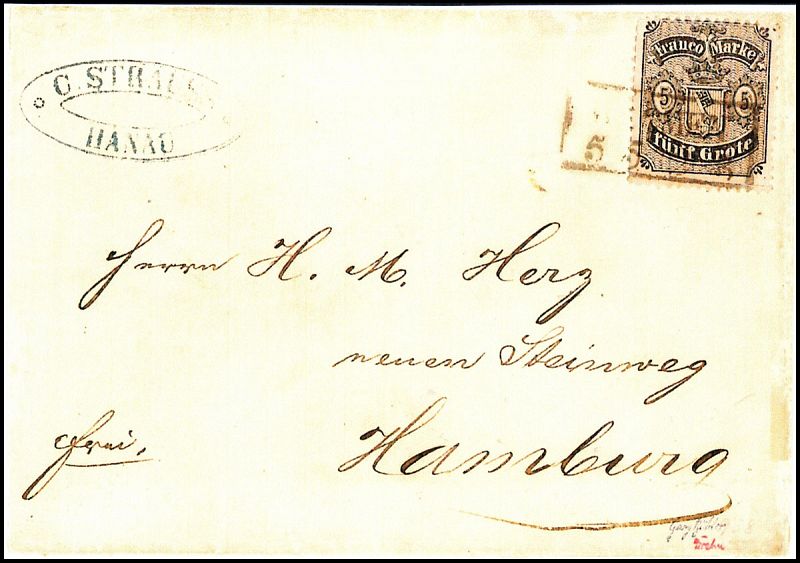 C. STRAUSS
HANNO
Franco Marke
5 5
fünf Grote
5 5
Herrn H. M. Herz
neuen Steinweg
frei.
Hamburg